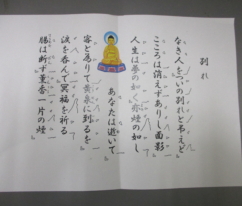 別れ
なき人をついの別れと弔えど
こころは消えずありし面影
人生は夢の如く 煙の如し
あなたは逝いて
客と為りて黄泉に到るを
涙を呑んで冥福を祈る
腸は断ず薫香一片の煙